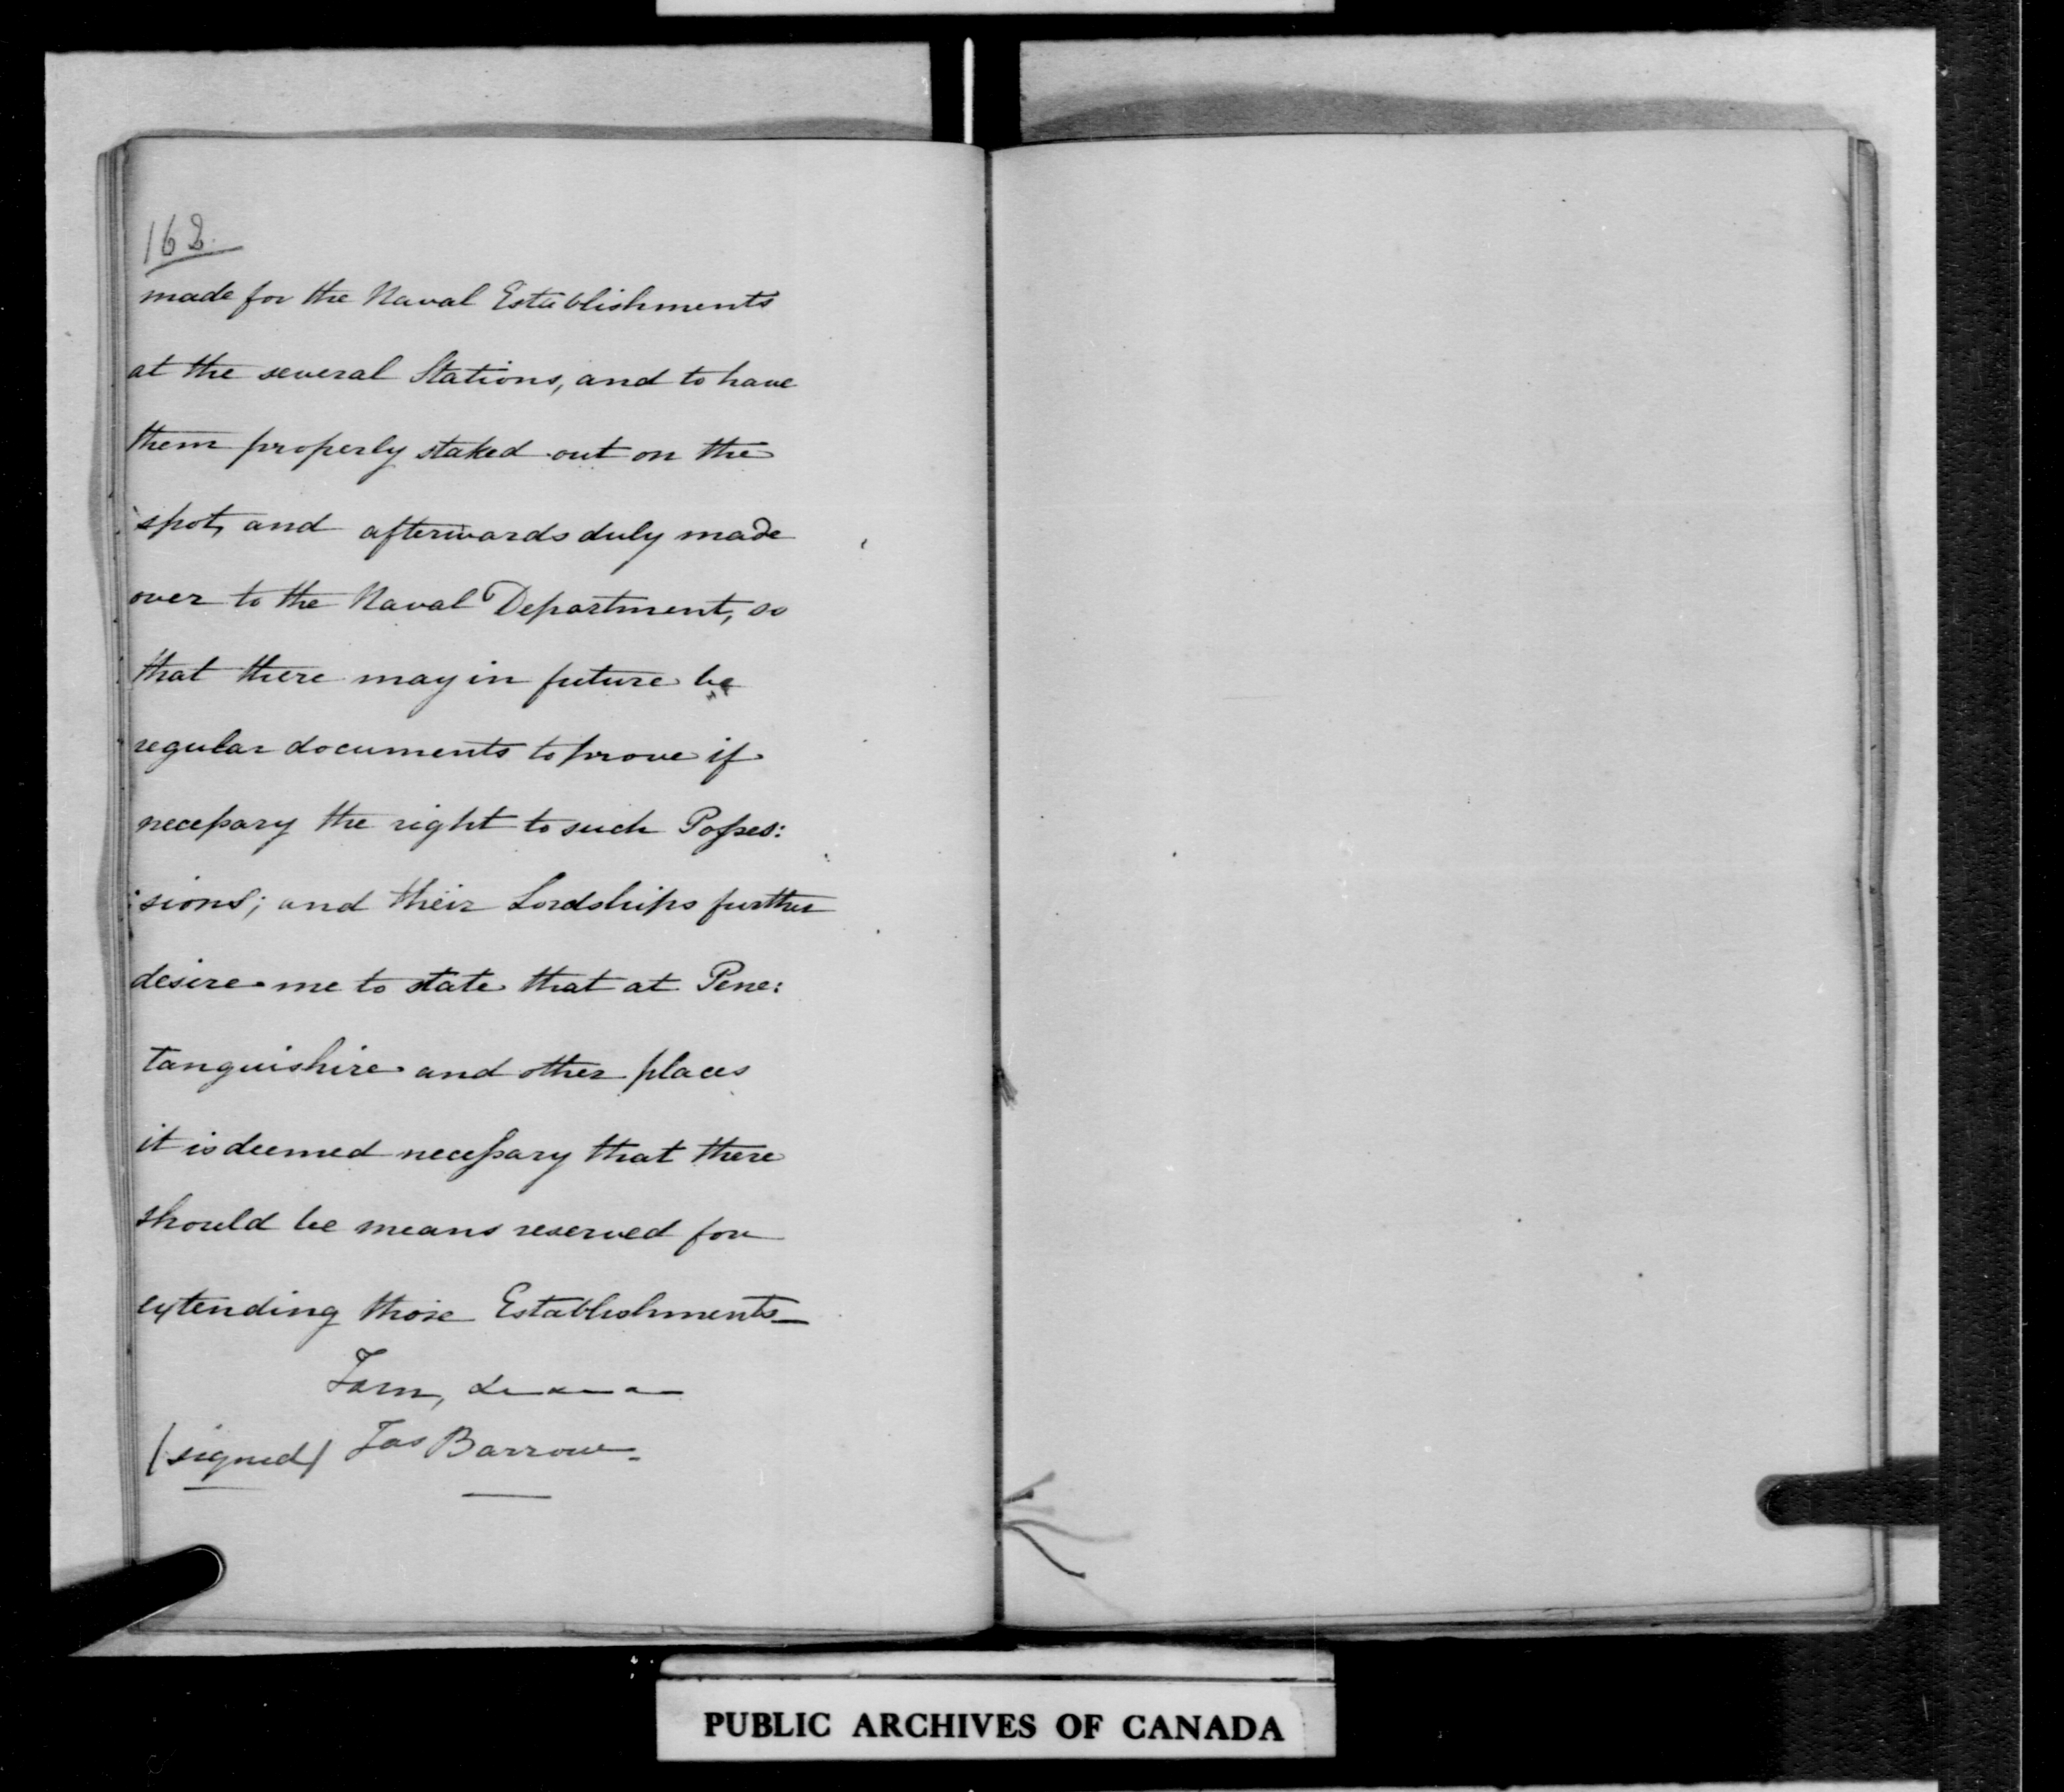 168.
made for the Naval Establishments
at the several Stations, and to have
them properly staked out on the
spot, and afterwards duly made
over to the Naval Department, so
that there may in future be
regular documents to prove if
necessary the right to such Posses:
:sions; and their Lordships further
desire me to state that at Pene:
tanguishire and other places
it is deemed necessary that there
should be means reserved for
extending those Establishments_
I am,
(signed) Jas Barrow.
PUBLIC ARCHIVES OF CANADA